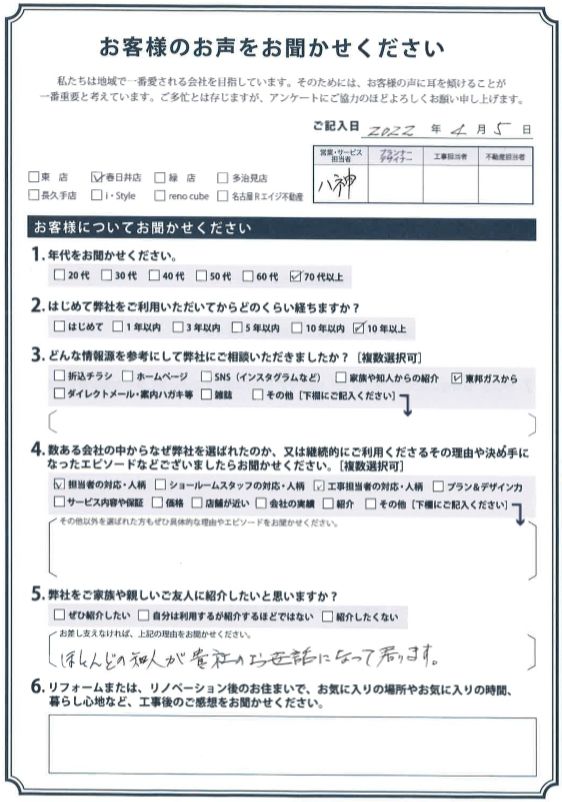 お客様のお声をお聞かせください
私たちは地域で一番愛される会社を目指しています。そのためには、お客様の声に耳を傾けることが
一番重要と考えています。ご多忙とは存じますが、アンケートにご協力のほどよろしくお願い申し上げます。
ご記入日 2022 年 4 月 5 日
営業・サービス担当者 プランナーデザイナー 工事担当者 不動産担当者
八神
□東 店 ☑春日井店 □緑 店 □多治見店
□長久手店 □i・Style □reno cube □名古屋Rエイジ不動産
お客様についてお聞かせください
1. 年代をお聞かせください。
□20代 □30代 □40代 □50代 □60代 ☑70代以上
2. はじめて弊社をご利用いただいてからどのくらい経ちますか？
□はじめて □1年以内 □3年以内 □5年以内 □10年以内 ☑10年以上
3. どんな情報源を参考にして弊社にご相談いただきましたか？［複数選択可］
□折込チラシ □ホームページ □SNS（インスタグラムなど） □家族や知人からの紹介 ☑東邦ガスから
□ダイレクトメール・案内ハガキ等 □雑誌 □その他［下欄にご記入ください］
4. 数ある会社の中からなぜ弊社を選ばれたのか、又は継続的にご利用くださるその理由や決め手に
なったエピソードなどございましたらお聞かせください。［複数選択可］
☑担当者の対応・人柄 □ショールームスタッフの対応・人柄 ☑工事担当者の対応・人柄 □プラン＆デザイン力
□サービス内容や保証 □価格 □店舗が近い □会社の実績 □紹介 □その他［下欄にご記入ください］
その他以外を選ばれた方もぜひ具体的な理由やエピソードをお聞かせください。
5. 弊社をご家族や親しいご友人に紹介したいと思いますか？
□ぜひ紹介したい □自分は利用するが紹介するほどではない □紹介したくない
お差し支えなければ、上記の理由をお聞かせください。
ほとんどの知人が貴社のお世話になって居ります。
6. リフォームまたは、リノベーション後のお住まいで、お気に入りの場所やお気に入りの時間、
暮らし心地など、工事後のご感想をお聞かせください。